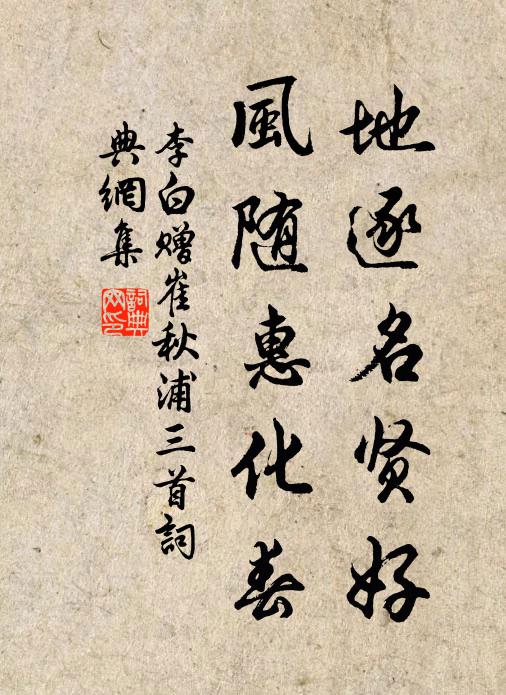 地逐名贤好
風随惠化春
李白赠崔秋浦三首詞
典網集
詞典
网印